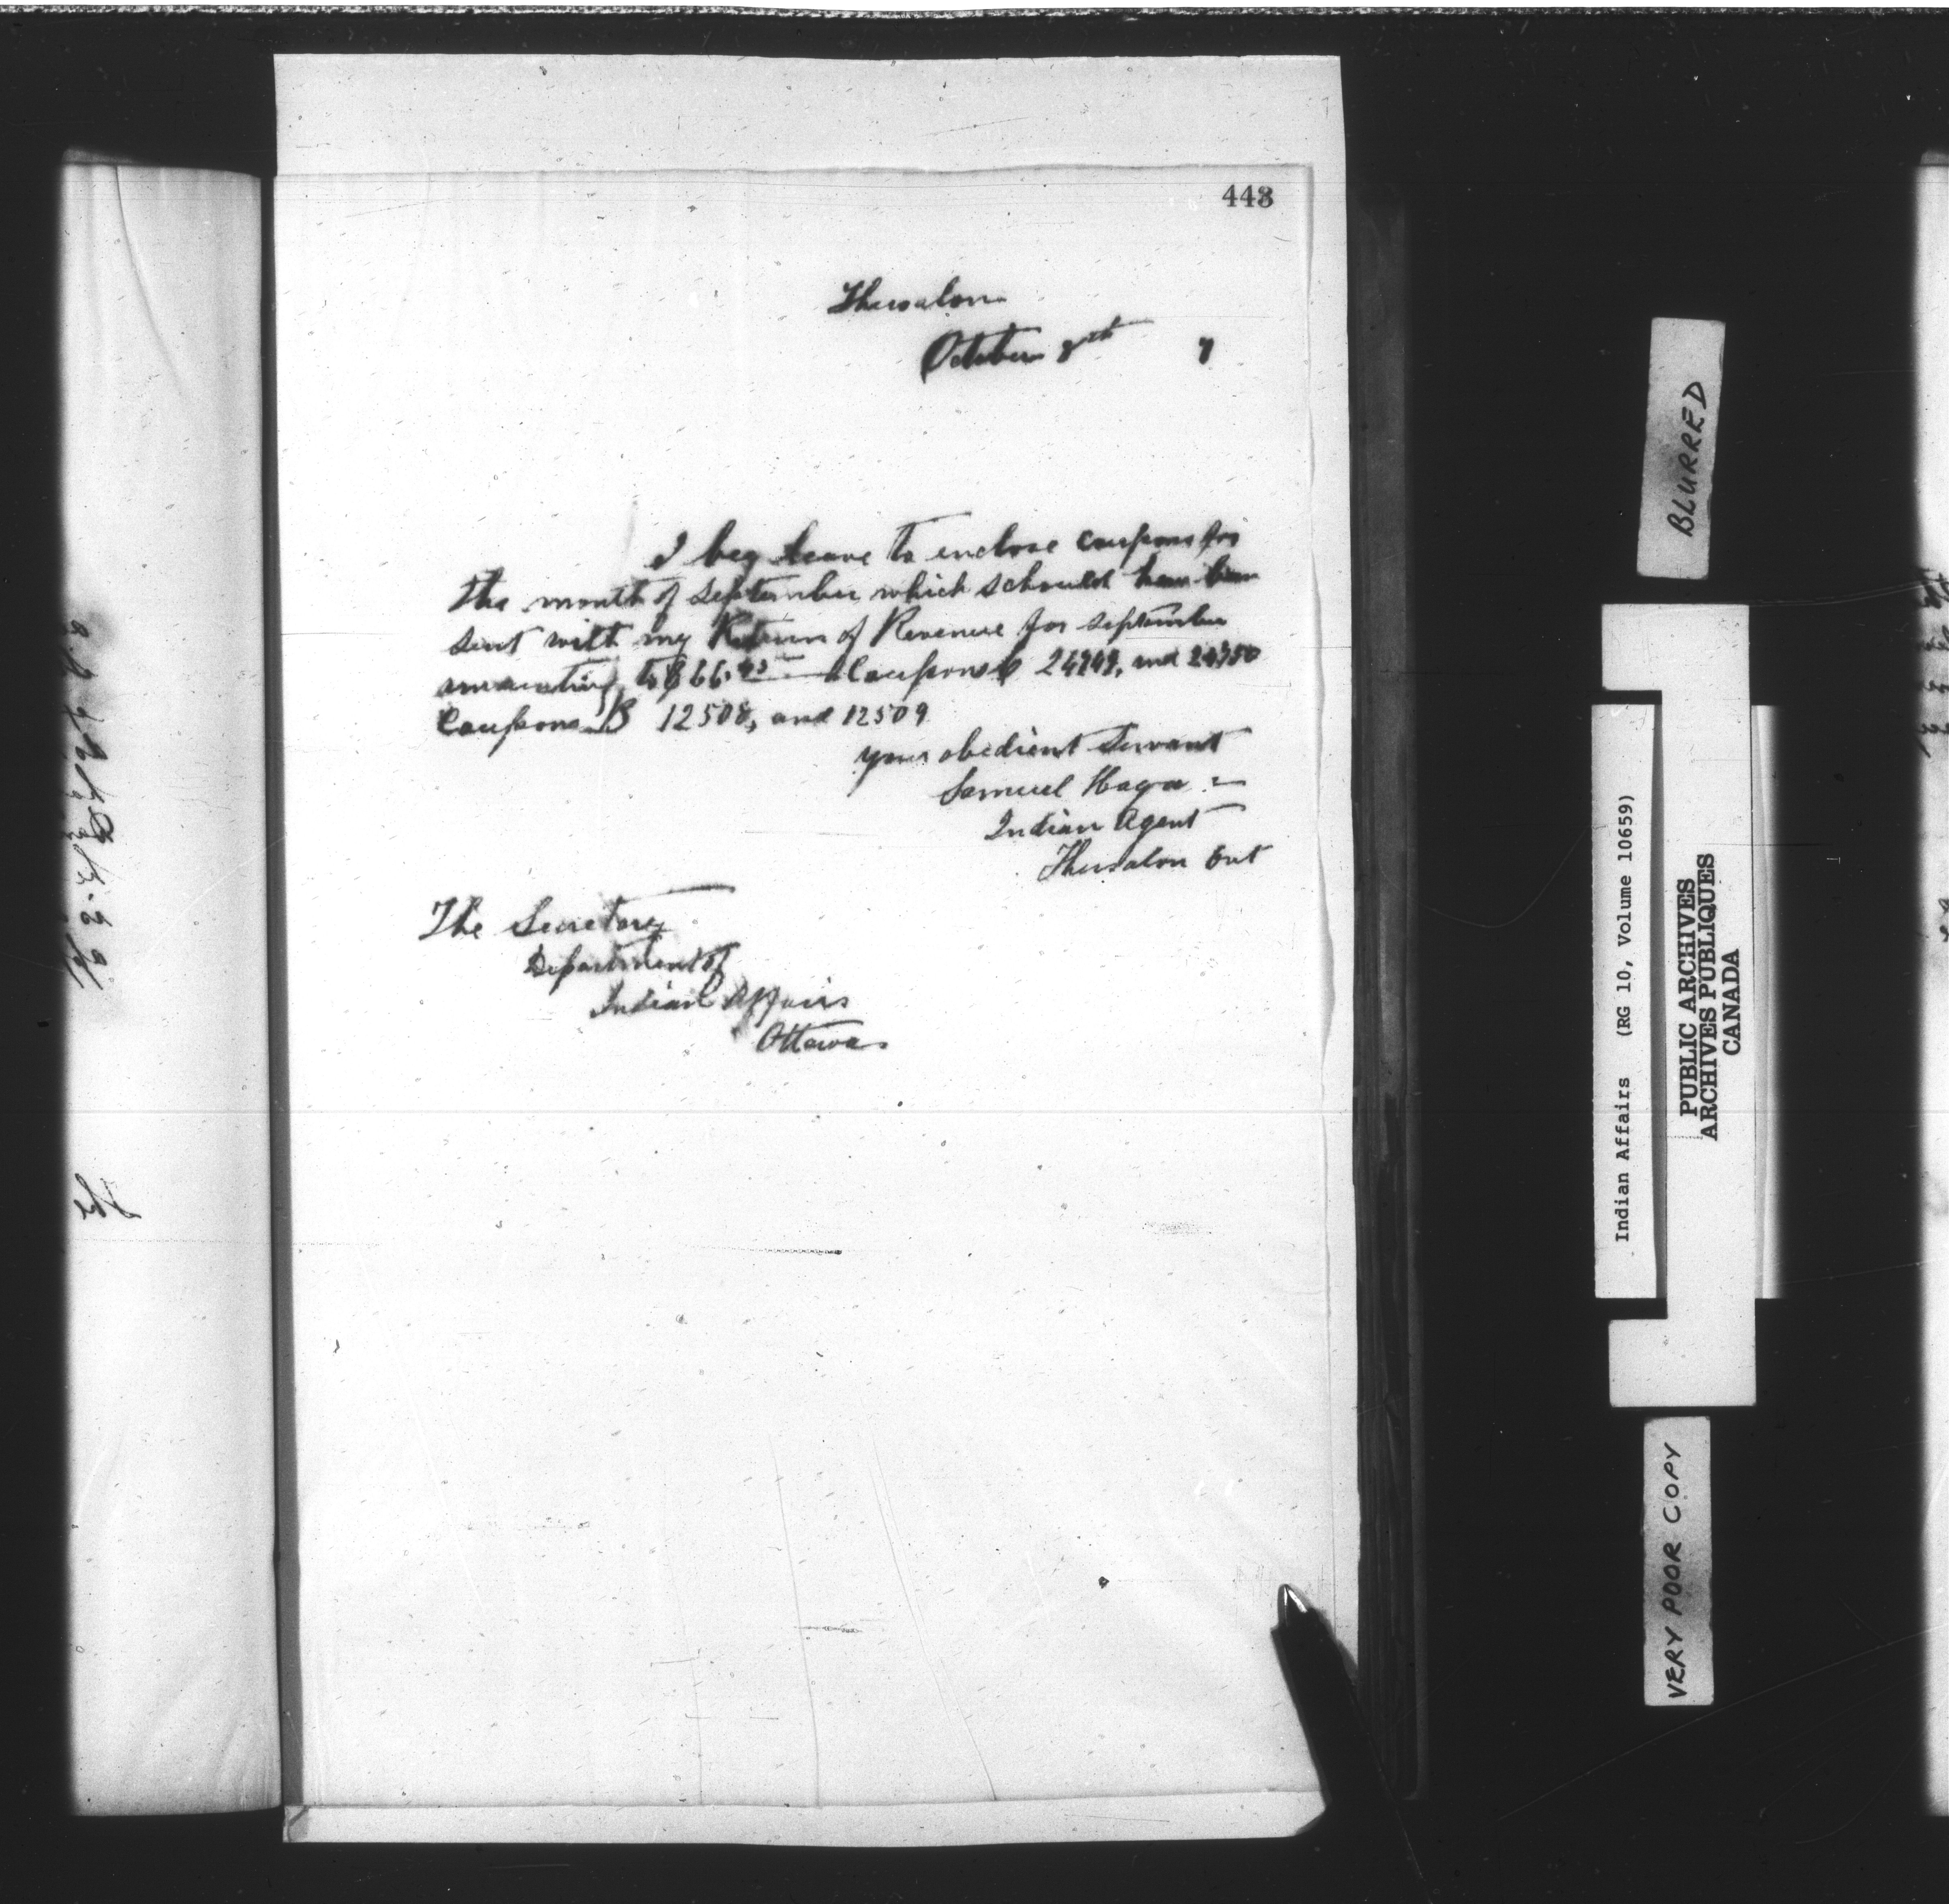 443
Thessalon
October 8th 7
I beg leave to enclose coupons for
the month of September which schould have been
sent with my Return of Revenue for September
amounting to $66.43 Coupons 24749, and 24750
Coupons B 12508, and 12509
your obedient Servant
Samuel Hagan
Indian Agent
Thessalon Ont
The Secretary
Department of
Indian Affairs
Ottawa
BLURRED
Indian Affairs (RG 10, Volume 10659)
PUBLIC ARCHIVES
ARCHIVES PUBLIQUES
CANADA
VERY POOR COPY